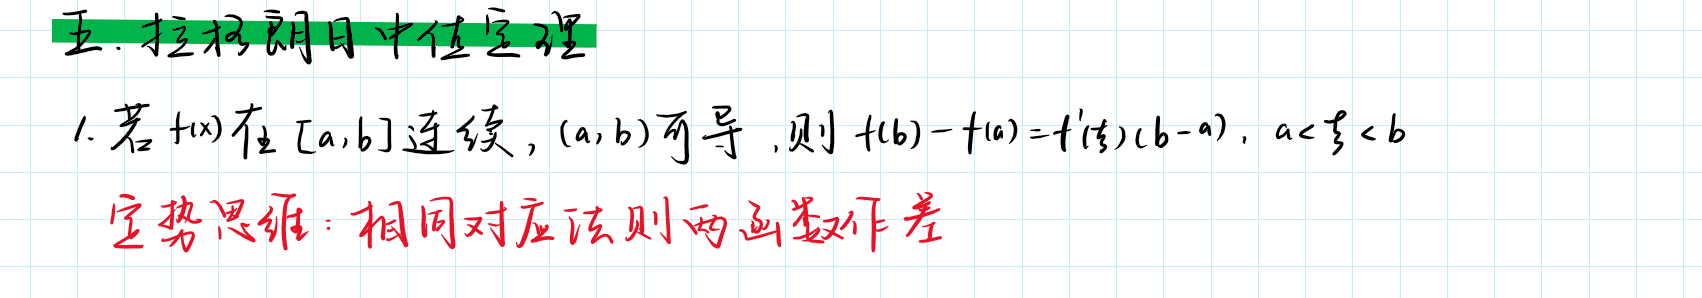 五.拉格朗日中值定理
1.若f(x)在[a,b]连续,(a,b)可导,则f(b)-f(a)=f'(ξ)(b-a), a<ξ<b
定势思维:相同对应法则两函数作差